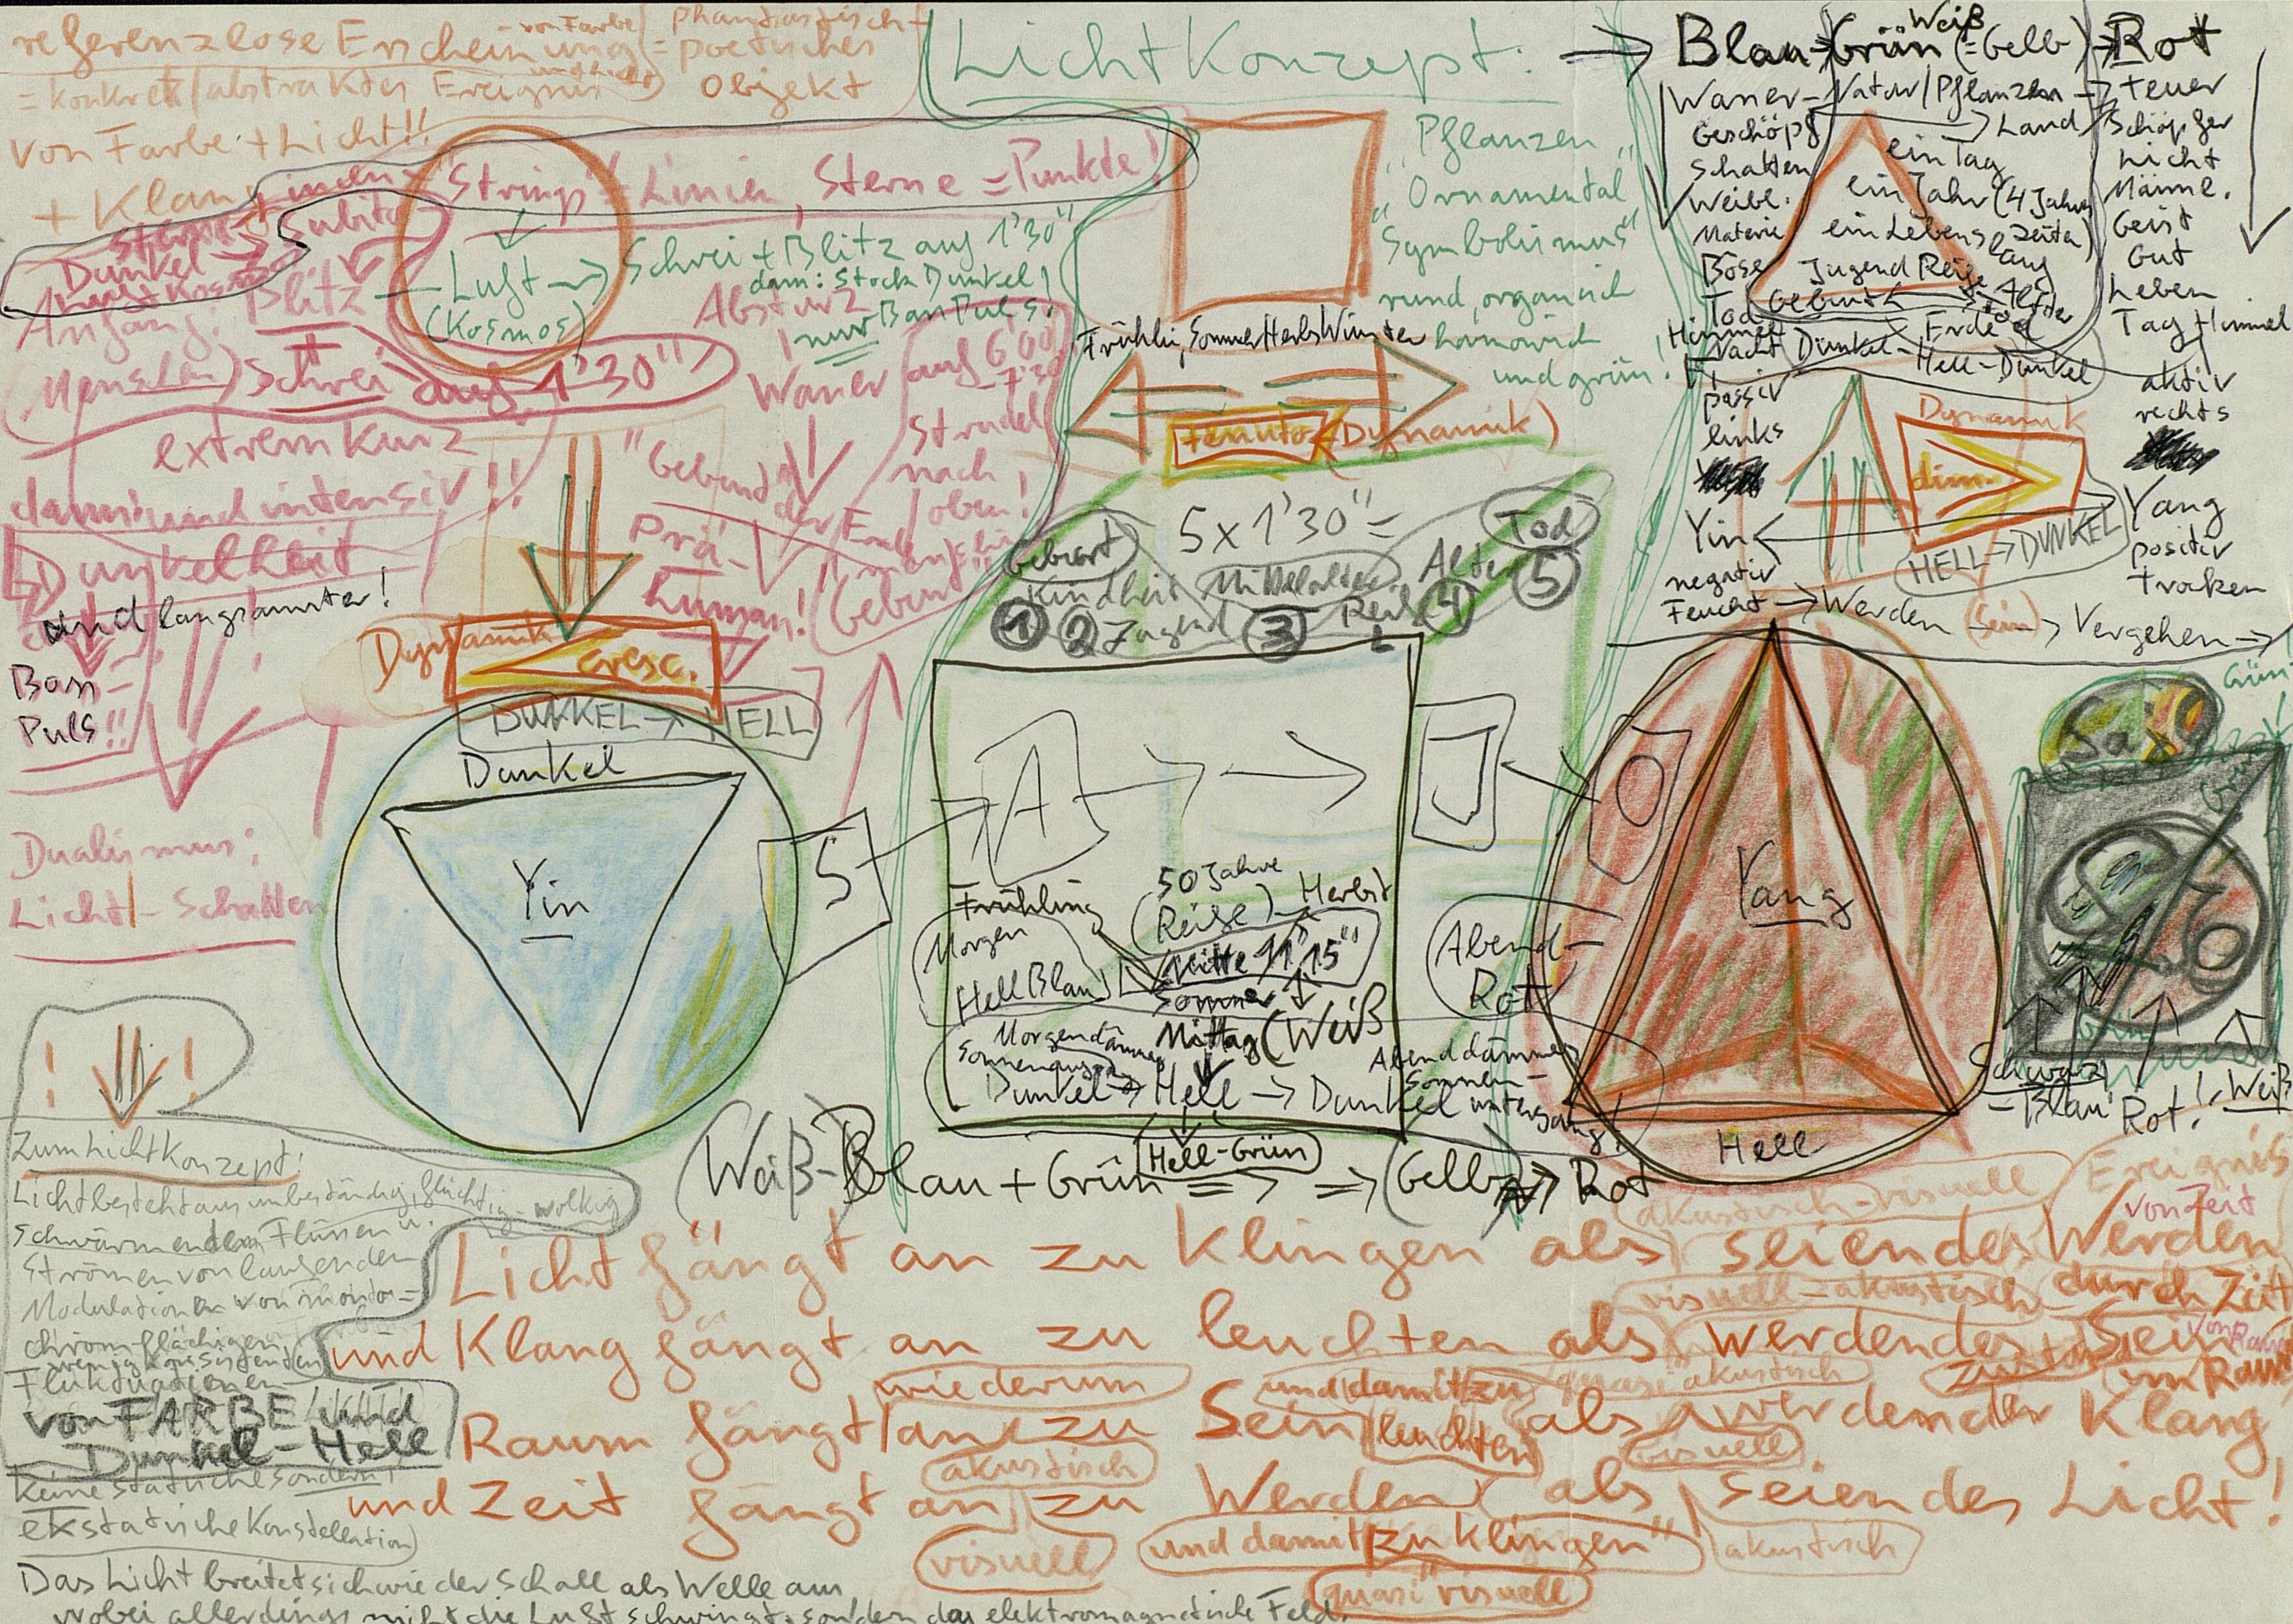 referenzlose Erscheinung
von Farbe
= phantastisch +
poetisches
Objekt
= konkret/abstraktes Ereignis
von Farbe + Licht!!
+ Klang
"Strings" = Linien, Sterne = Punkte!
Dunkel → Subito
Anfang: Blitz
(Menschen) Schrei auf 1'30"
extrem kurz
und intensiv!!
dann:
Dunkelheit
und langsamster!
Bass-
Puls!!
Dualismus:
Licht - Schatten
Luft → Schrei + Blitz auf 1'30"
(Kosmos)
dann: Stock Dunkel!
nur Bass Puls!
Absturz
Wasser
auf 6'00"
- 7'30"
Strudel
nach
oben!
"Geburt der Erde"
Prä-
human!
Geburt
Lichtkonzept:
→ Blau - Grün (= Gelb) → Rot
Weiß
"Pflanzen
Ornamental"
"Symbolismus"
rund, organisch
harmonisch
und grün!
Wasser - Natur/Pflanzen → Feuer
Geschöpf
→ Land
Schöpfer
Schatten
ein Tag
Licht
Weibl.
ein Jahr (4 Jahreszeiten)
Männl.
Materie
ein Leben lang
Geist
Böse
Jugend Reife Alter
Gut
Tod
Geburt
Tod
Leben
Himmel
Erde
Tag + Himmel
Nacht
Dunkel -
Hell - Dunkel
passiv
aktiv
links
rechts
Dynamik
dim.
Yin
Yang
HELL → DUNKEL
negativ
positiv
Feucht
trocken
→ Werden (Sein) → Vergehen →
Frühli, Sommer Herbst Winter
tenuto (Dynamik)
5 x 1'30" =
Geburt
Kindheit
Mittelalter
Alter
Tod
1 2 Jugend 3 Reife 4 5
Dynamik
cresc.
DUNKEL → HELL
Dunkel
Yin
S
A
J
O
Yang
Hell
Sax
Grün
Frühling
50 Jahre
(Reife)
Herbst
Morgen
Hell Blau
Mitte 11'15"
Sommer
Mittag (Weiß
Abend-
Rot
Morgendämmer
Sonnenaufg
Abenddämmer
Sonnen-
untergang
Dunkel → Hell → Dunkel
(Weiß-) Blau + Grün (Hell-Grün) ⇒ ⇒ (Gelb) ⇒ Rot
Schwarz
- Blau
Rot!
Weiß
Zum Lichtkonzept:
Licht besteht aus unbeständig, flüchtig - wolkig
schwärmenden Flüssen u.
Strömen von laufenden
Modulationen von mono-
chrom-flächigen
wenig konsistenten
Fluktuationen
von FARBE und
Dunkel - Hell
keine statische sondern
ekstatische Konstellation
Das Licht breitet sich wie der Schall als Welle aus
wobei allerdings nicht die Luft schwingt, sondern das elektromagnetische Feld.
akustisch-visuell
Ereignis
von Zeit
Licht fängt an zu klingen als seiendes Werden
visuell-akustisch
durch Zeit
und Klang fängt an zu leuchten als werdendes Sein
von Raum
wiederum
und damit zu
quasi akustisch
Zustand
im Raum
Raum fängt an zu Sein leuchten als werdender Klang
akustisch
visuell
und Zeit fängt an zu Werden als seiendes Licht!
visuell
und damit "zu klingen"
akustisch
quasi "visuell"